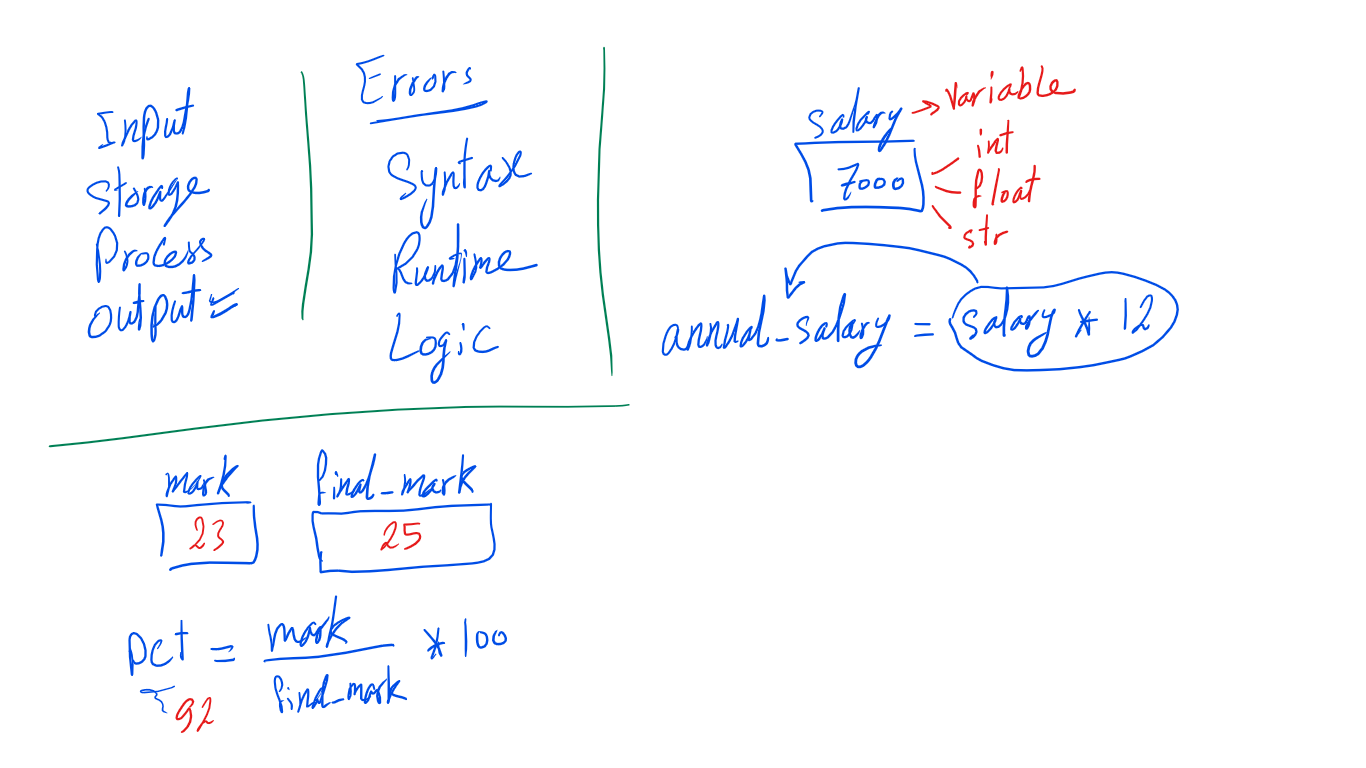 Input
Storage
Process
output
Errors
Syntax
Runtime
Logic
salary → Variable
7000
int
float
str
annual_salary = salary * 12
mark
23
final_mark
25
pct = mark / final_mark * 100
92